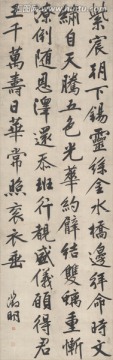 紫宸朝下錫靈絲金水橋邊拜命時文
繡自天騰五色光華約臂結雙螭重慚
潦倒随恩澤還忝班行覩盛儀願得君
王千萬壽日華常照衮衣垂 徵明